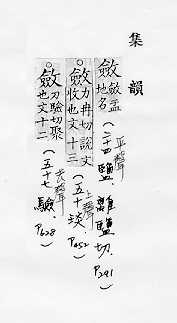 集韻
斂斂盂
地名(二十四鹽.離鹽切.P291)平聲
斂力冉切說文
收也文十三(五十琰.P452)上聲
斂力驗切聚
也文十二(五十七驗.P628)去聲